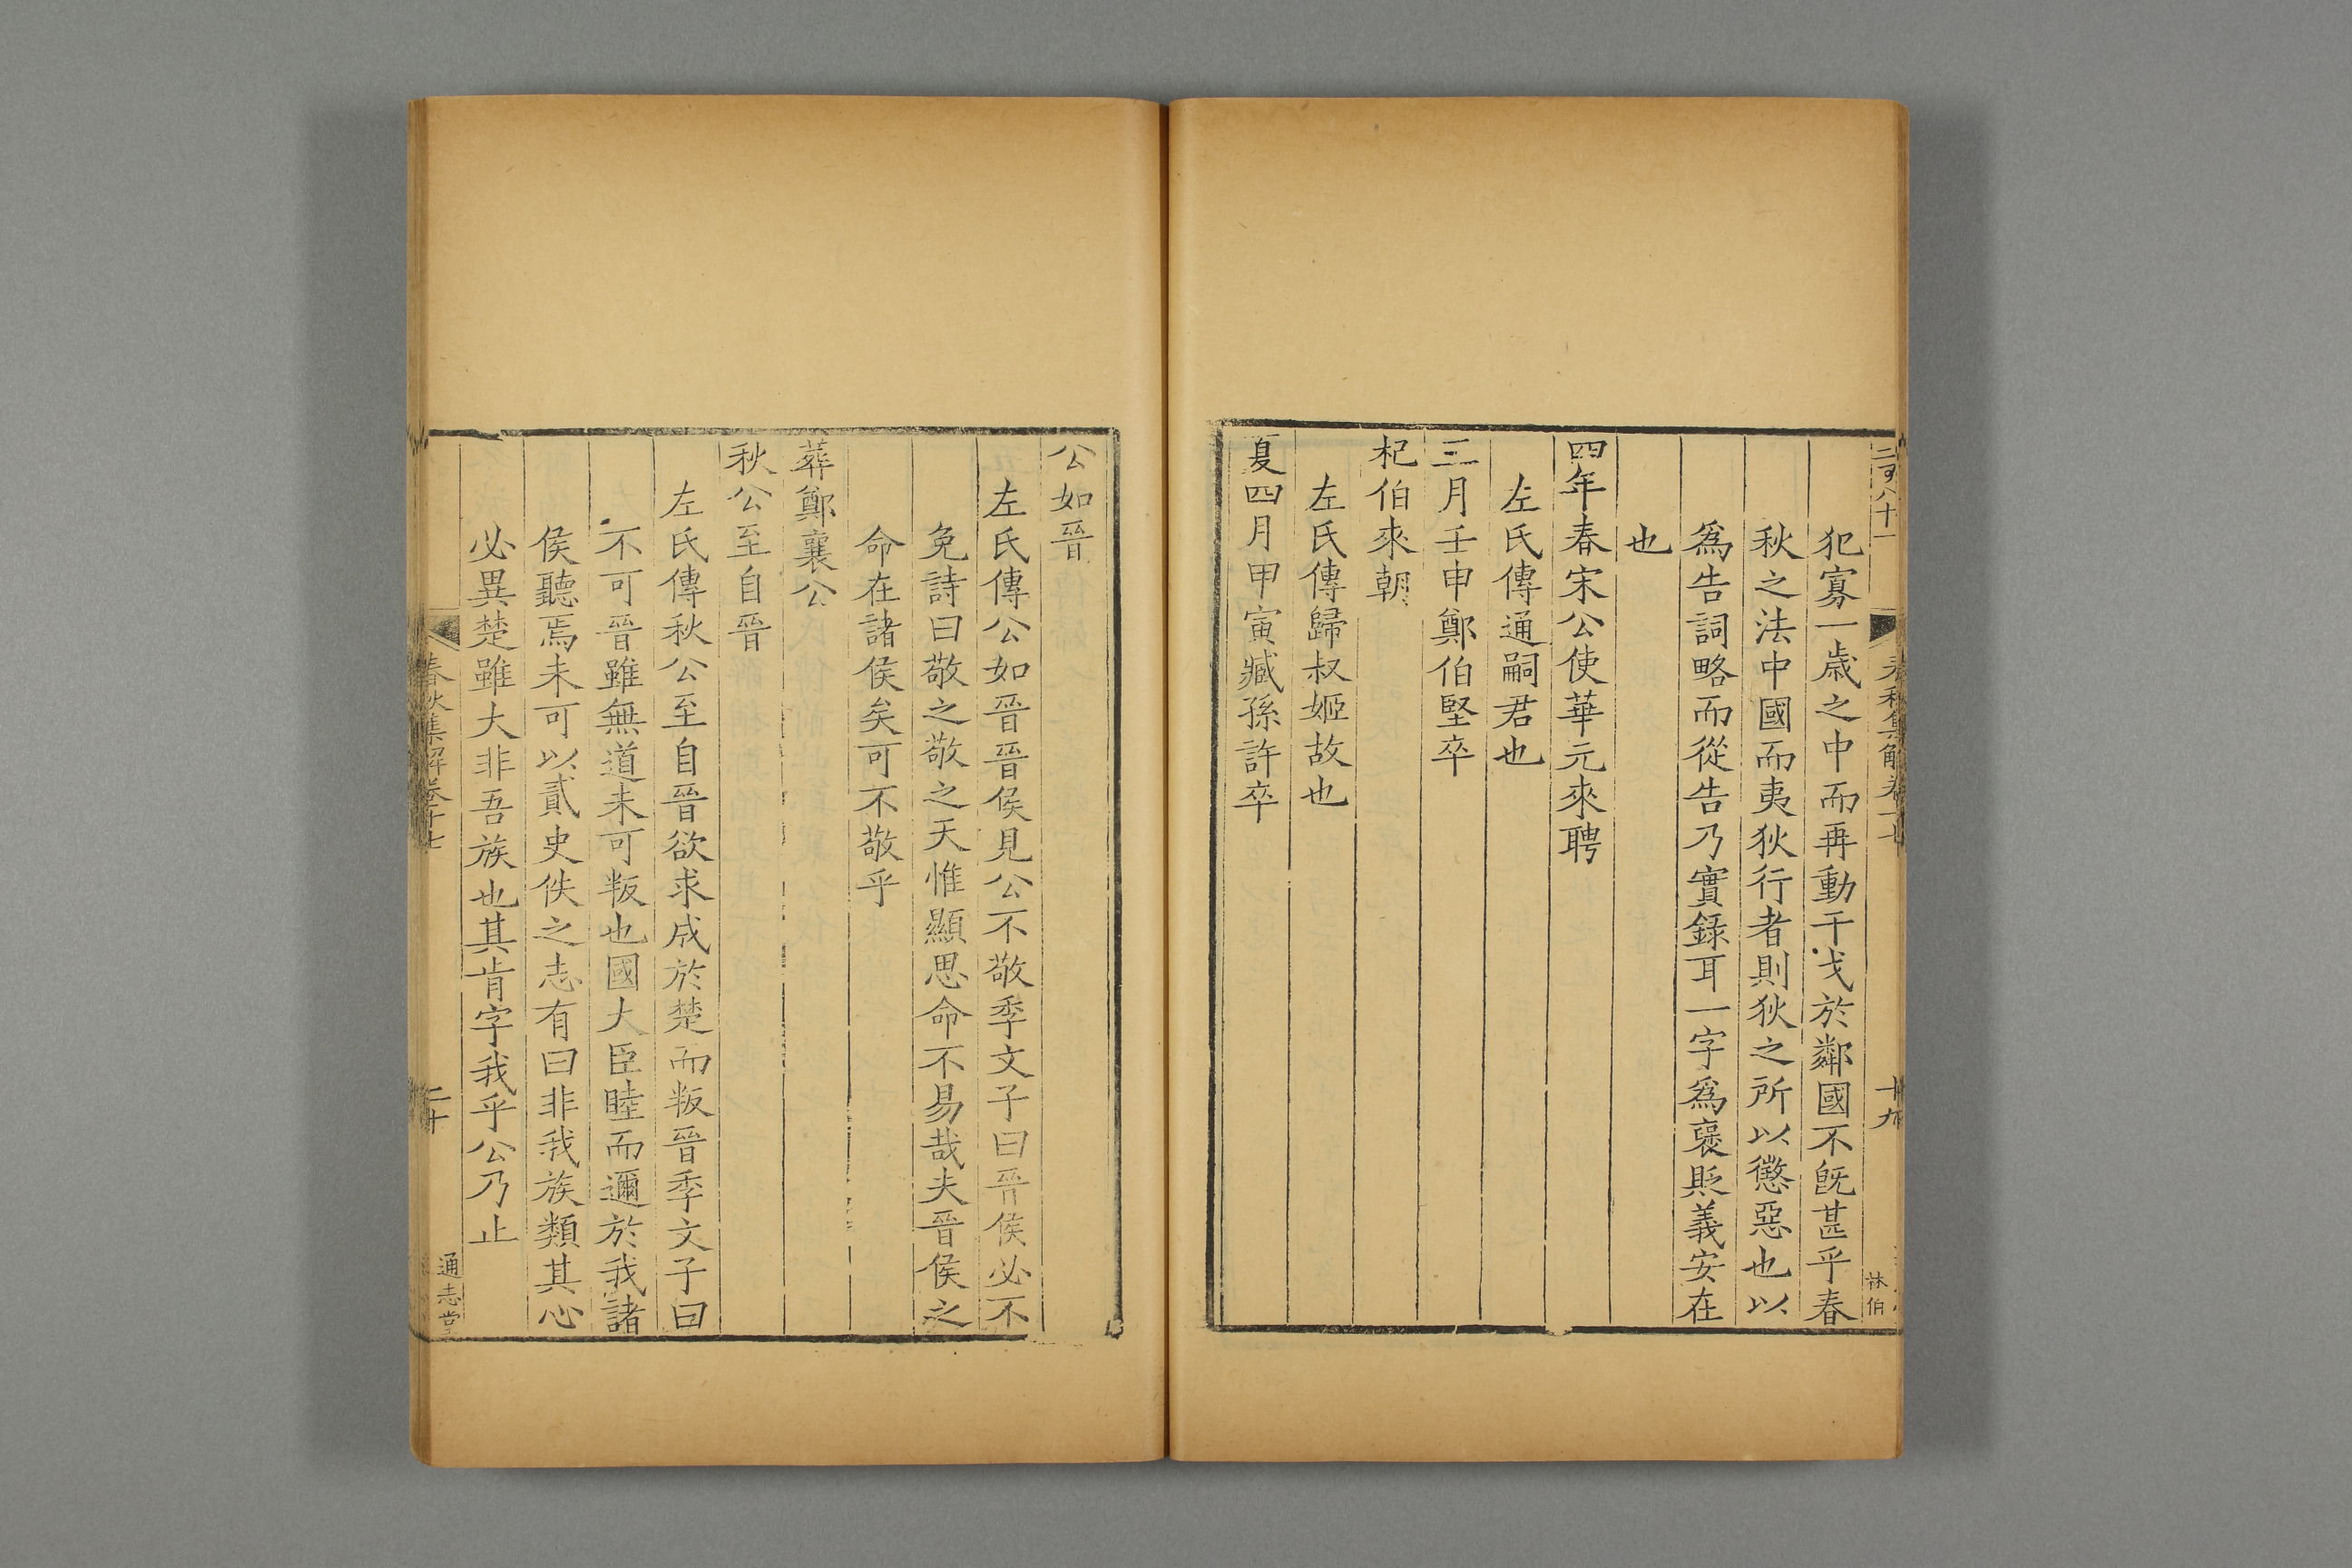 犯寡一歲之中而再動干戈於鄰國不旣甚乎春
秋之法中國而夷狄行者則狄之所以懲惡也以
爲告詞略而從告乃實錄耳一字爲襃貶義安在
也
四年春宋公使華元來聘
左氏傳通嗣君也
三月壬申鄭伯堅卒
杞伯來朝
左氏傳歸叔姬故也
夏四月甲寅臧孫許卒
十九
林伯
公如晉
左氏傳公如晉晉侯見公不敬季文子曰晉侯必不
免詩曰敬之敬之天惟顯思命不易哉夫晉侯之
命在諸侯矣可不敬乎
葬鄭襄公
秋公至自晉
左氏傳秋公至自晉欲求成於楚而叛晉季文子曰
不可晉雖無道未可叛也國大臣睦而邇於我諸
侯聽焉未可以貳史佚之志有曰非我族類其心
必異楚雖大非吾族也其肯字我乎公乃止
春秋集解卷十七
二十
通志堂